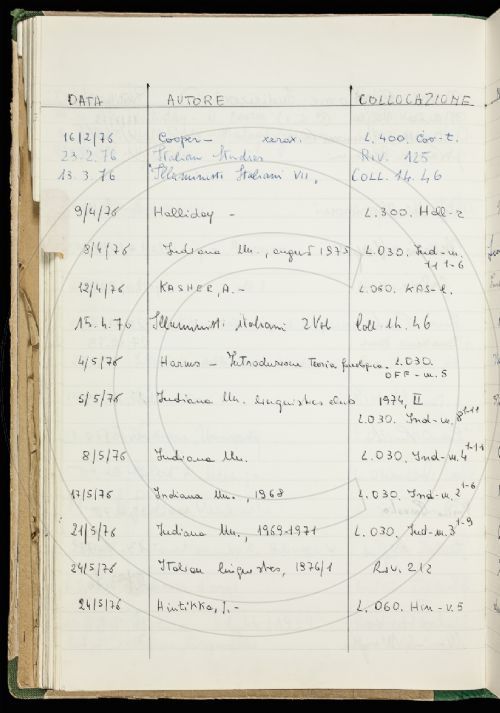 DATA AUTORE COLLOCAZIONE
16/2/76 Cooper - xerox. L.400. Coo-t.
23.2.76 Italian Studies Riv. 125
13.3.76 "Illuministi Italiani VII. COLL. 14.46
9/4/76 Halliday - L.300. Hall-2
8/4/76 Indiana Un., august 1975 L.030. Ind-u.
11 1-6
12/4/76 KASHER, A.- L.060. KAS-l.
15.4.76 Illuministi italiani 2 Vol Coll. 14.46
4/5/76 Harms - Introduzione Teoria fonologica. L.030.
OFF-u.5
5/5/76 Indiana Un. linguistics club 1974, II
L.030. Ind-u.8 1-11
8/5/76 Indiana Un. L.030. Ind-u.4 1-14
17/5/76 Indiana Un., 1968 L.030. Ind-u.2 1-6
21/5/76 Indiana Un., 1969-1971 L.030. Ind-u.3 1-9
24/5/76 Italian linguistics, 1976/1 Riv. 212
24/5/76 Hintikka, J.- L.060. Hin-v.5